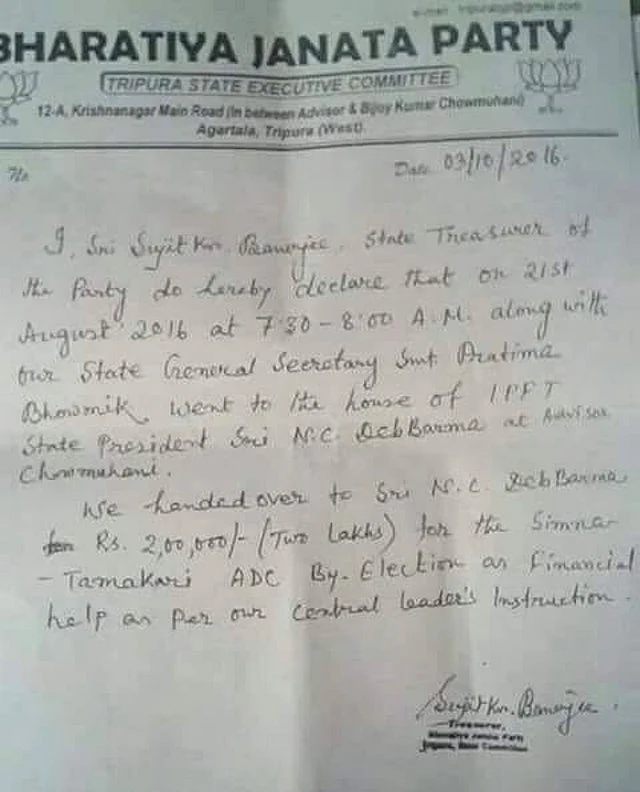 BHARATIYA JANATA PARTY
TRIPURA STATE EXECUTIVE COMMITTEE
12-A, Krishnanagar Main Road (In between Advisor & Bijoy Kumar Chowmuhani)
Agartala, Tripura (West)
Date 03/10/2016.
I, Sri Sujit Kr. Banerjee. State Treasurer of
the Party do hereby declare that on 21st
August' 2016 at 7:30 - 8:00 A.M. along with
our State General Secretary Smt. Pratima
Bhowmik, went to the house of IPFT
State President Sri N.C. DebBarma at Advisor
Chowmuhani.
We handed over to Sri N.C. DebBarma
Rs. 2,00,000/- (Two Lakhs) for the Simna-
- Tamakari ADC By-Election as Financial
help as per our central leader's Instruction.
Sujit Kr. Banerjee.
Treasurer,
Bharatiya Janata Party
Tripura, State Committee